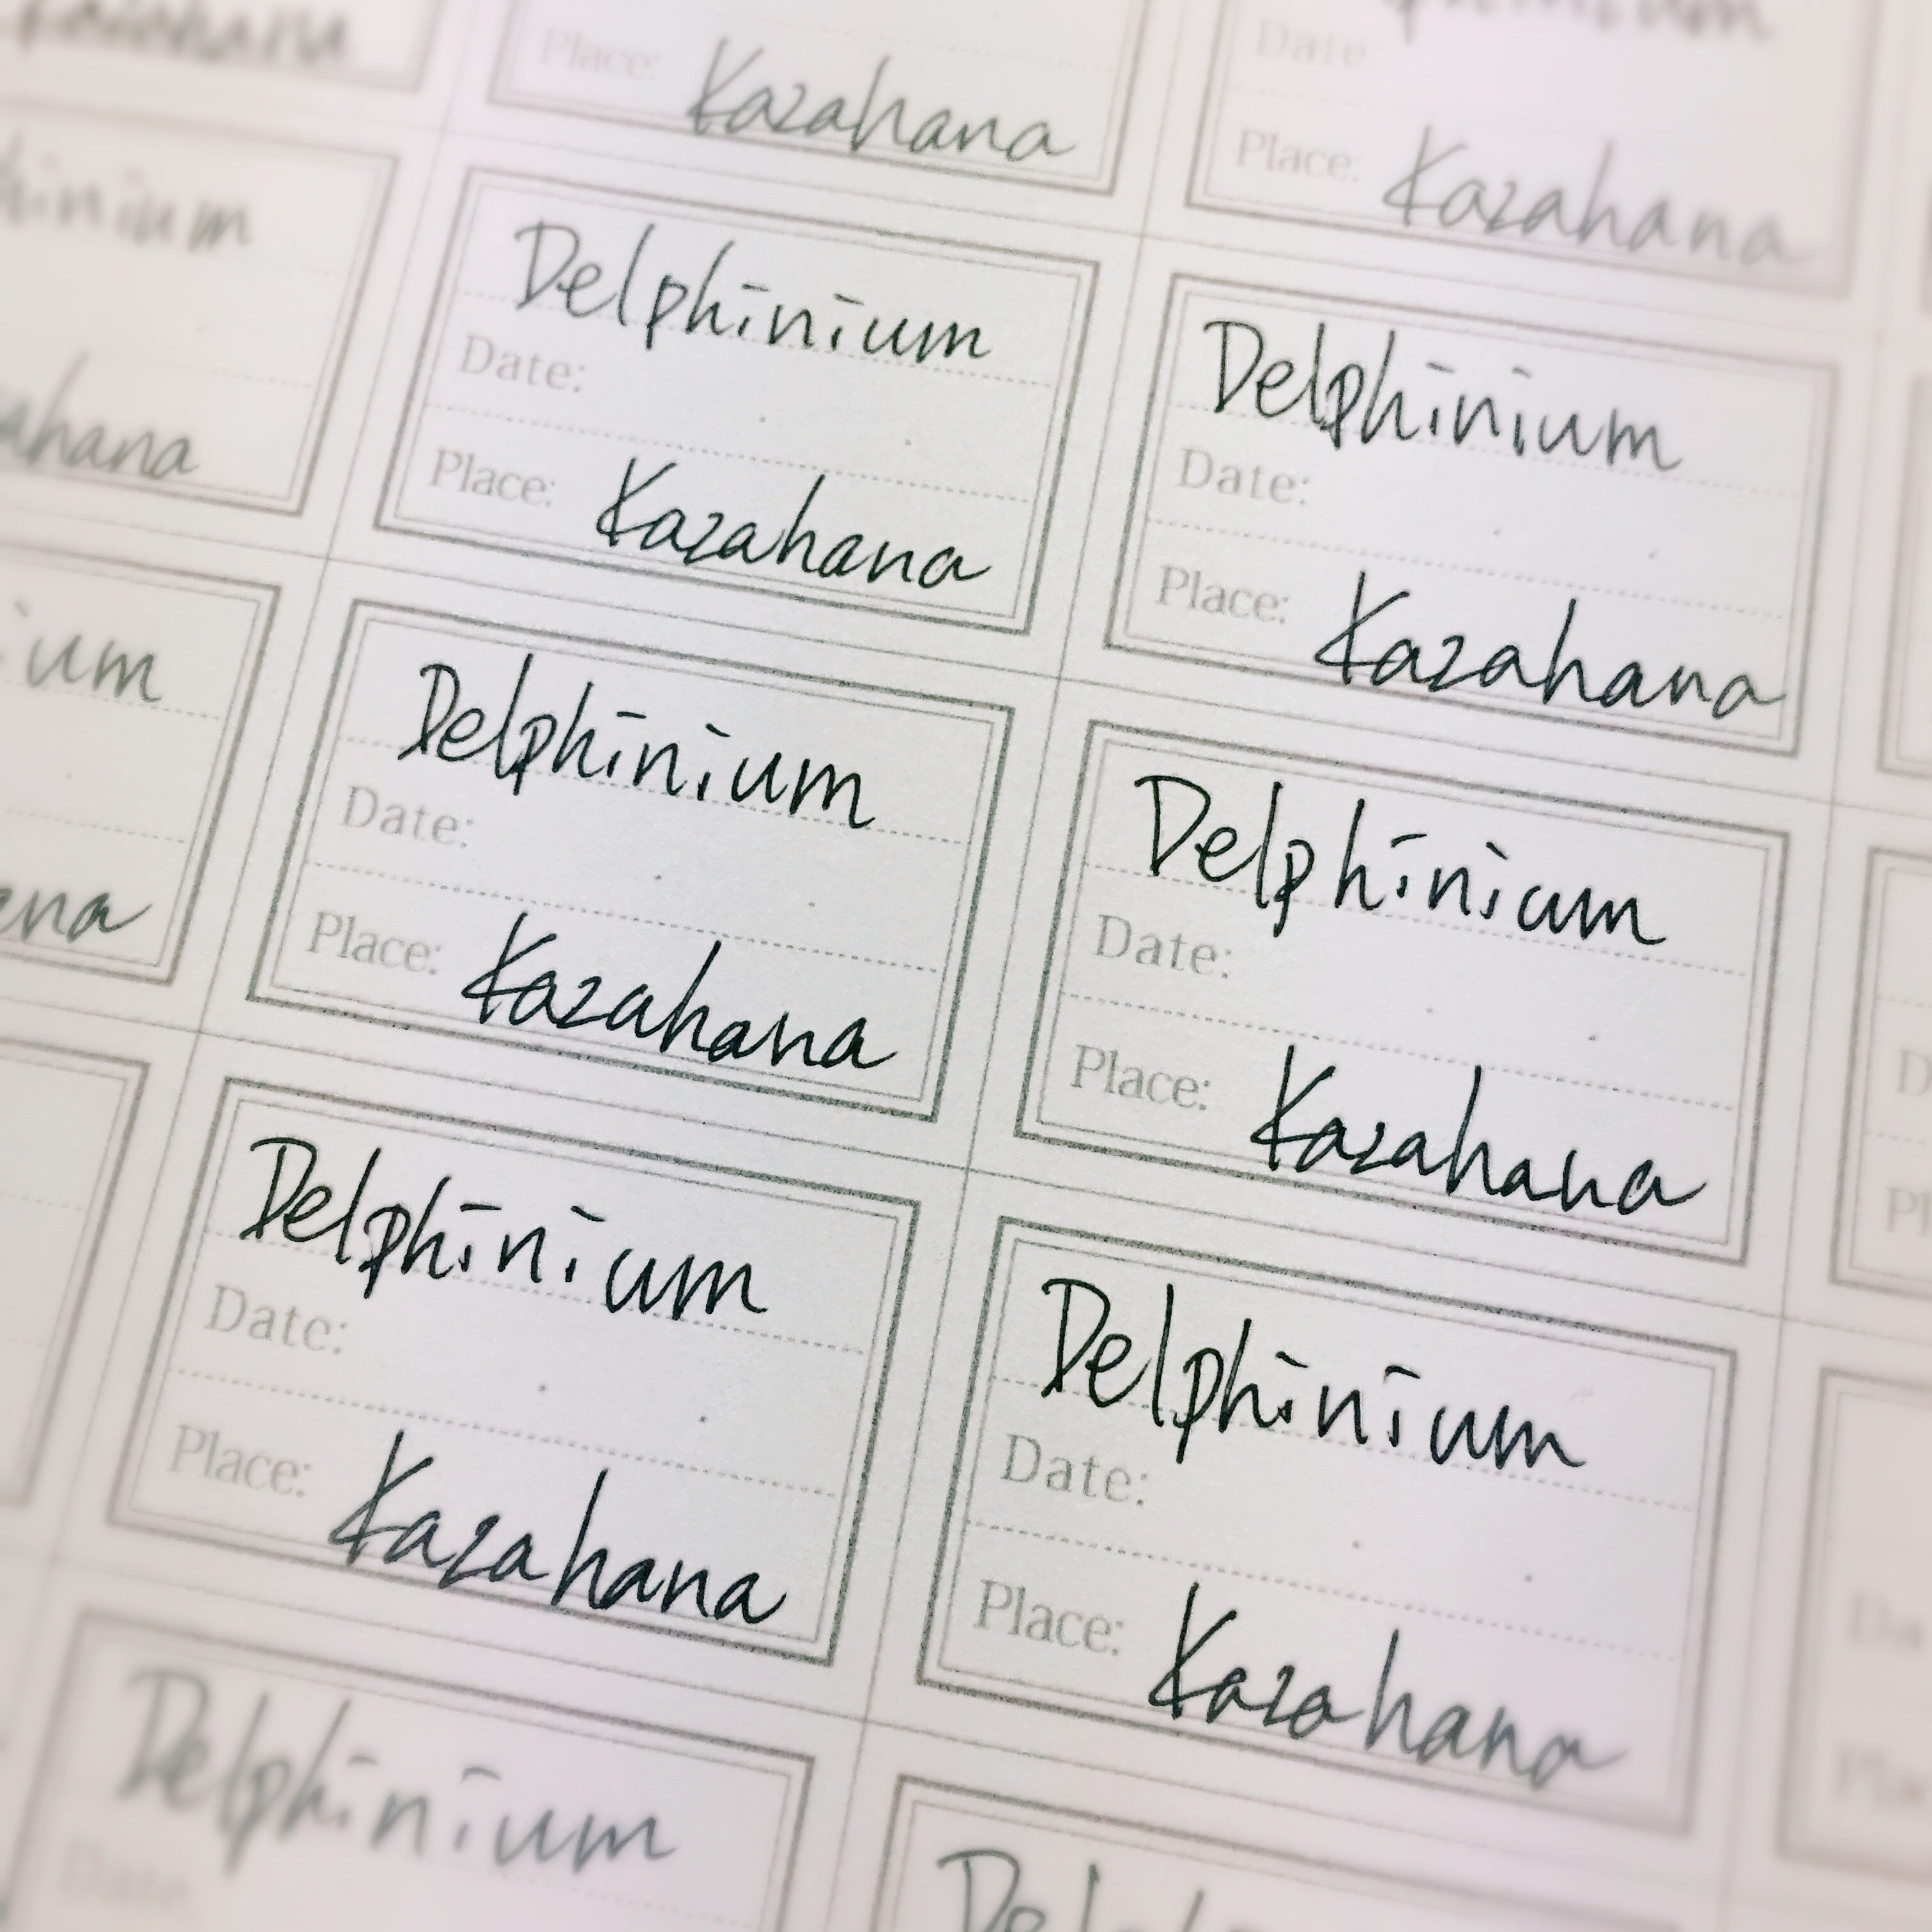 Place: Kazahana
Date:
Place: Kazahana
Delphinium
Date:
Place: Kazahana
Delphinium
Date:
Place: Kazahana
Delphinium
Date:
Place: Kazahana
Delphinium
Date:
Place: Kazahana
Delphinium
Date:
Place: Kazahana
Delphinium
Date:
Place: Kazahana
Delphinium
Date